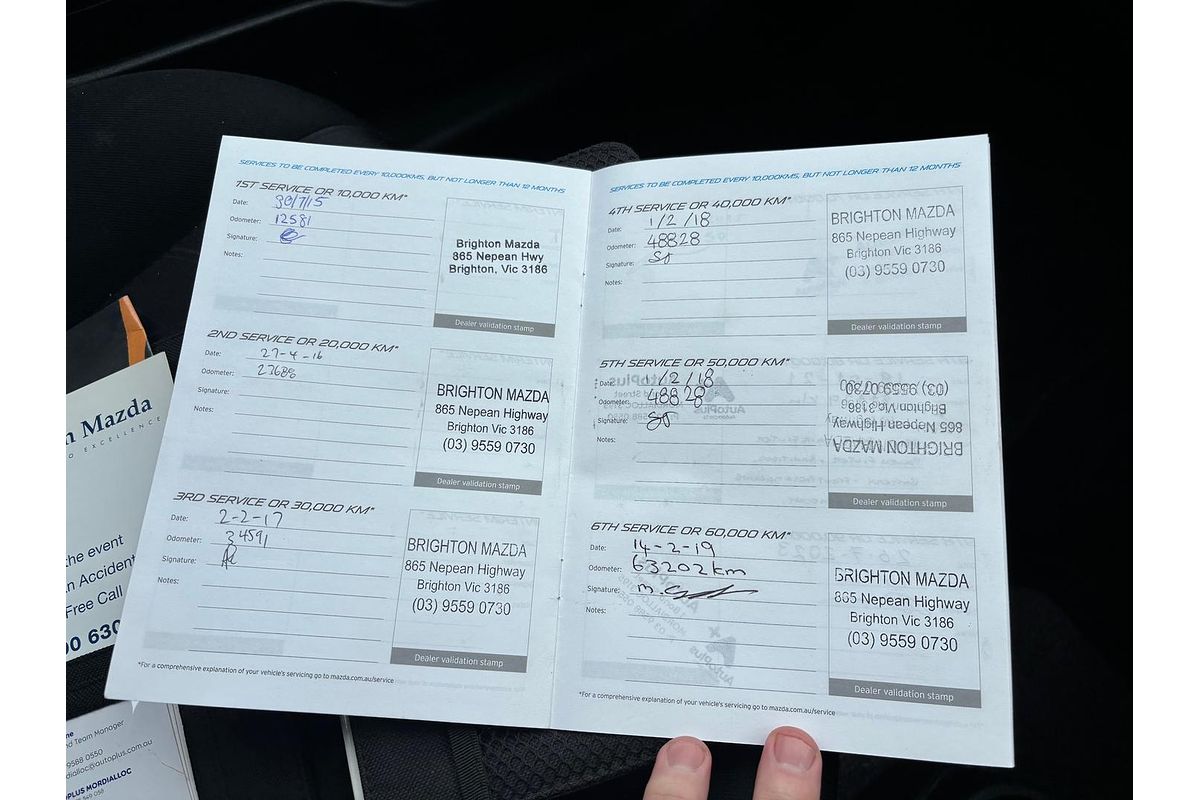 SERVICES TO BE COMPLETED EVERY 10,000KMS, BUT NOT LONGER THAN 12 MONTHS
1ST SERVICE OR 10,000 KM*
Date: 30/7/15
Odometer: 12581
Signature:
Notes:
Brighton Mazda
865 Nepean Hwy
Brighton, Vic 3186
Dealer validation stamp
2ND SERVICE OR 20,000 KM*
Date: 27-4-16
Odometer: 27688
Signature:
Notes:
BRIGHTON MAZDA
865 Nepean Highway
Brighton Vic 3186
(03) 9559 0730
Dealer validation stamp
3RD SERVICE OR 30,000 KM*
Date: 2-2-17
Odometer: 34591
Signature:
Notes:
BRIGHTON MAZDA
865 Nepean Highway
Brighton Vic 3186
(03) 9559 0730
Dealer validation stamp
*For a comprehensive explanation of your vehicle's servicing go to mazda.com.au/service
SERVICES TO BE COMPLETED EVERY 10,000KMS, BUT NOT LONGER THAN 12 MONTHS
4TH SERVICE OR 40,000 KM*
Date: 1/2/18
Odometer: 48828
Signature:
Notes:
BRIGHTON MAZDA
865 Nepean Highway
Brighton Vic 3186
(03) 9559 0730
Dealer validation stamp
5TH SERVICE OR 50,000 KM*
Date: 1/2/18
Odometer: 48828
Signature:
Notes:
BRIGHTON MAZDA
865 Nepean Highway
Brighton Vic 3186
(03) 9559 0730
Dealer validation stamp
6TH SERVICE OR 60,000 KM*
Date: 14-2-19
Odometer: 63202km
Signature:
Notes:
BRIGHTON MAZDA
865 Nepean Highway
Brighton Vic 3186
(03) 9559 0730
Dealer validation stamp
*For a comprehensive explanation of your vehicle's servicing go to mazda.com.au/service
n Mazda
O EXCELLENCE
the event
n Accident
Free Call
00 630
d Team Manager
9588 0550
dialloc@autoplus.com.au
PLUS MORDIALLOC